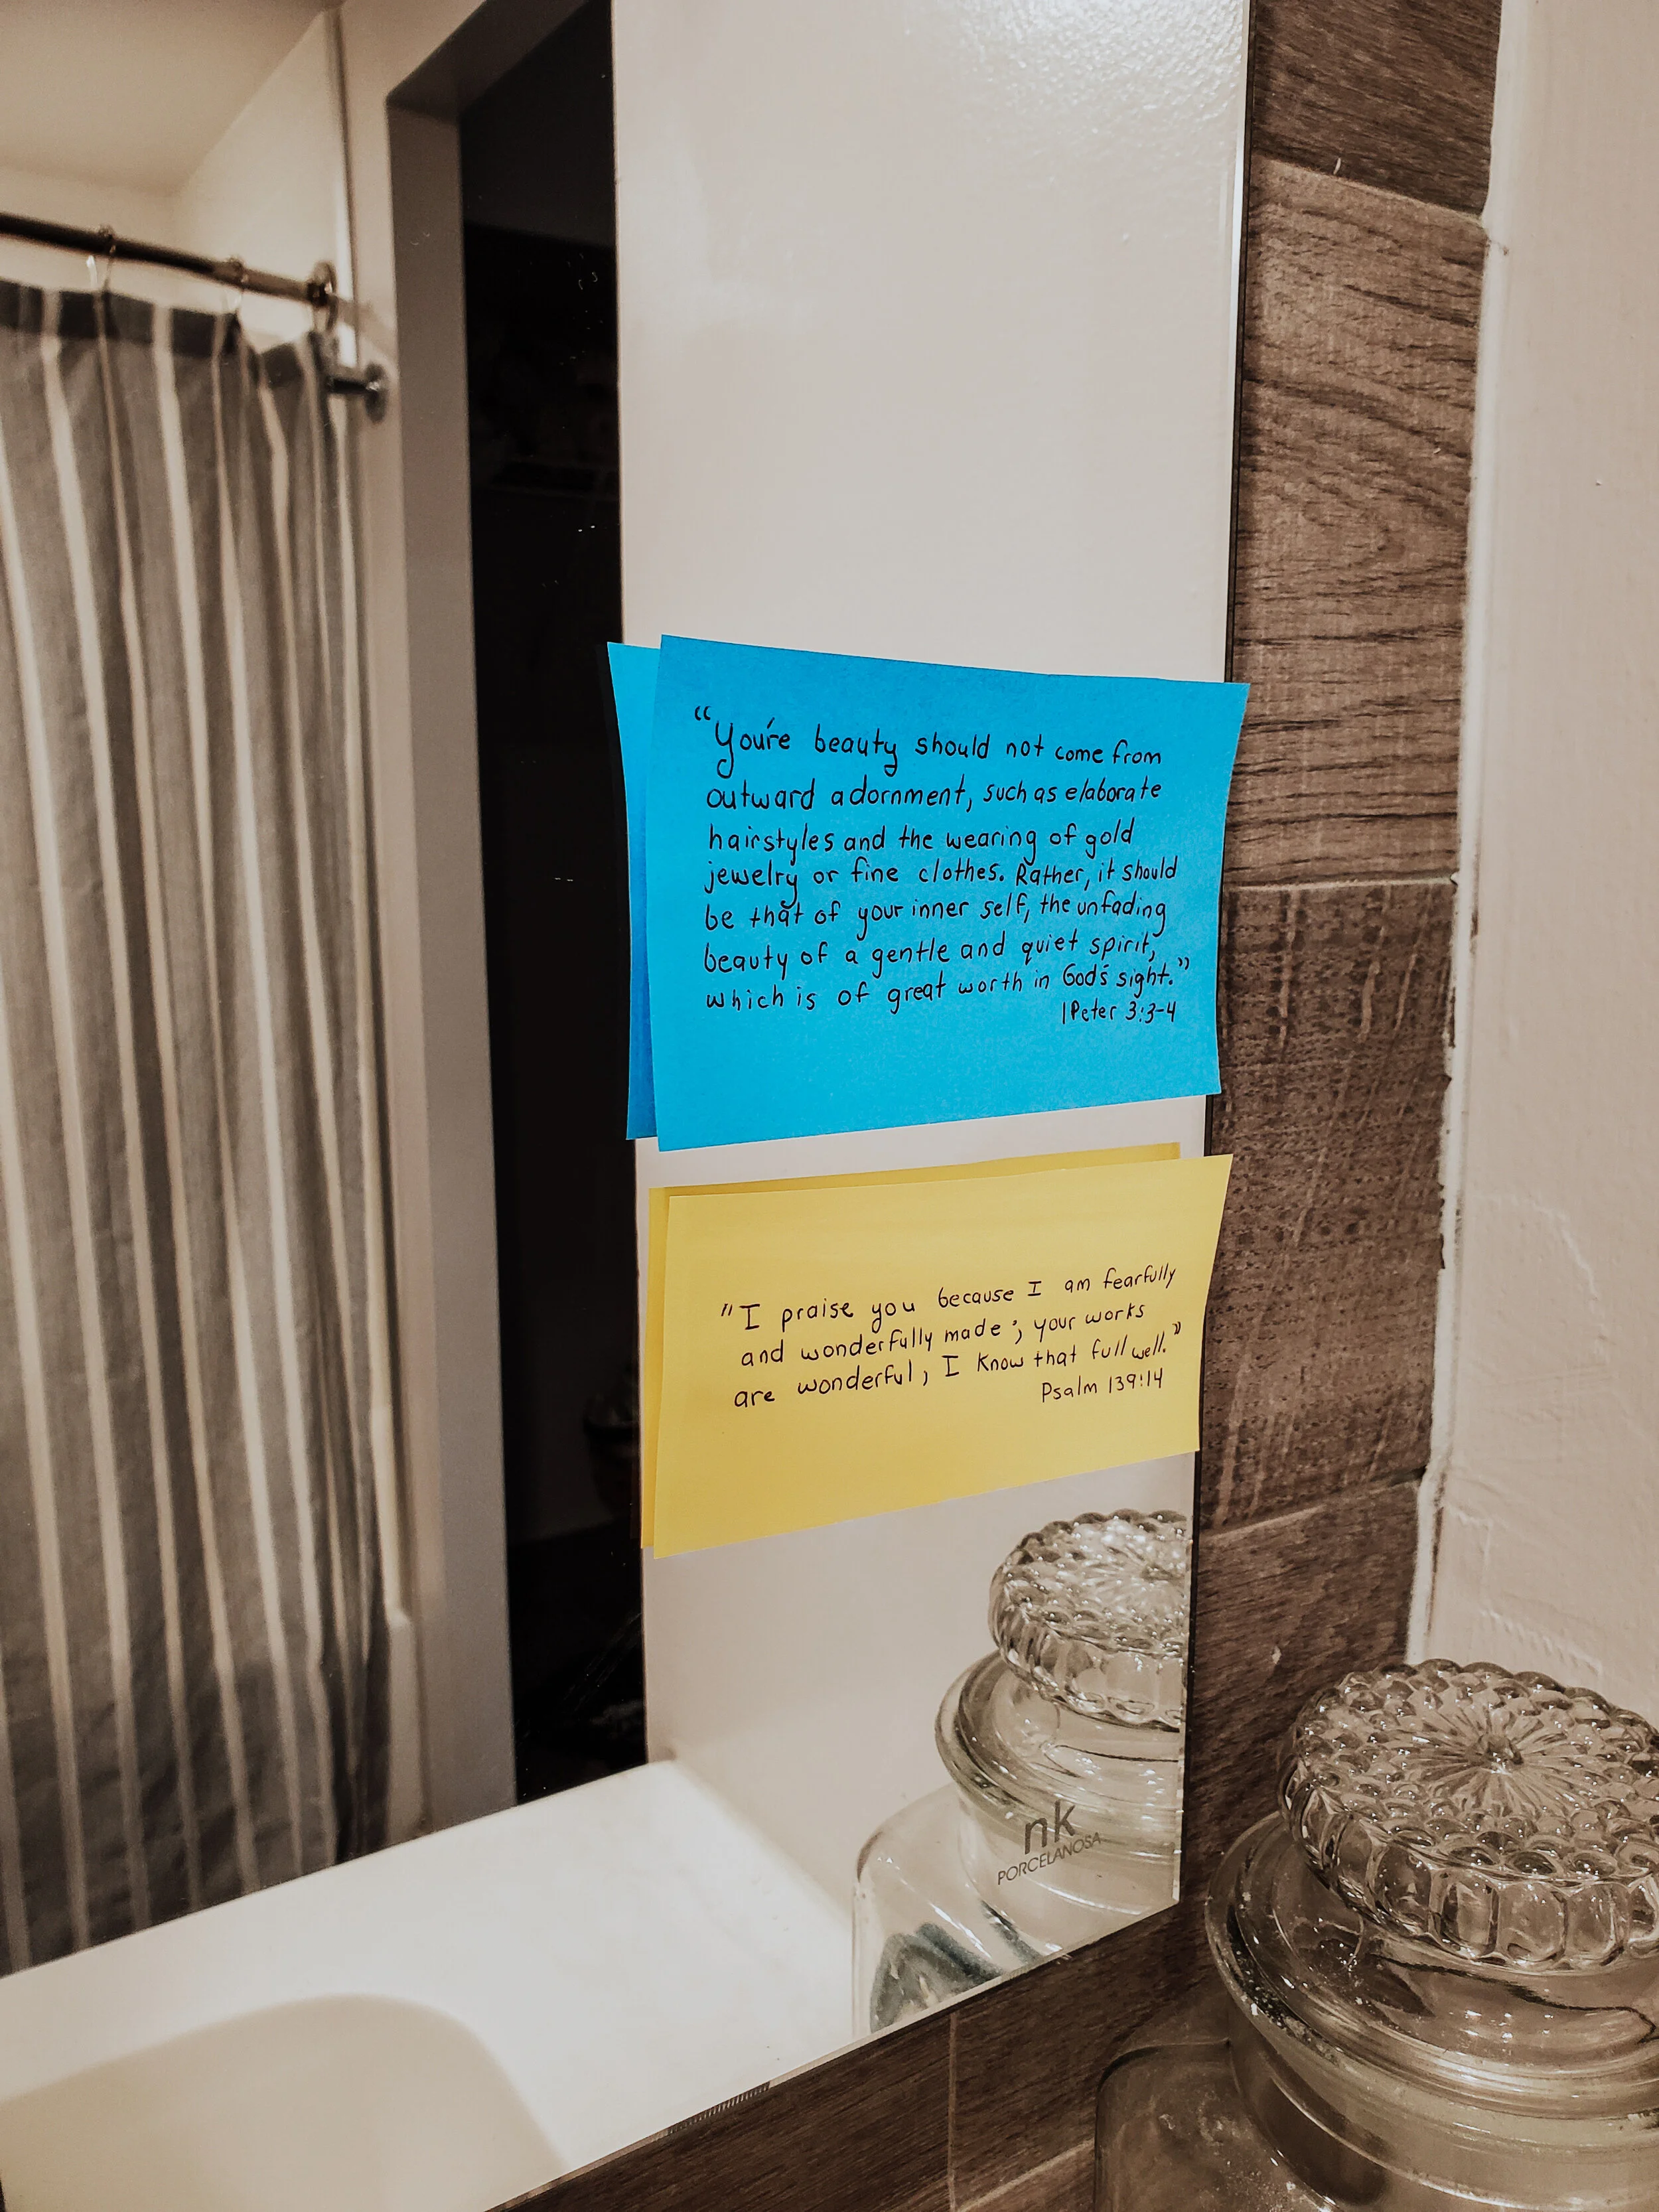 “You're beauty should not come from
outward adornment, such as elaborate
hairstyles and the wearing of gold
jewelry or fine clothes. Rather, it should
be that of your inner self, the unfading
beauty of a gentle and quiet spirit,
which is of great worth in God's sight.”
1Peter 3:3-4
"I praise you because I am fearfully
and wonderfully made; your works
are wonderful, I know that full well.”
Psalm 139:14
nk
PORCELANOSA